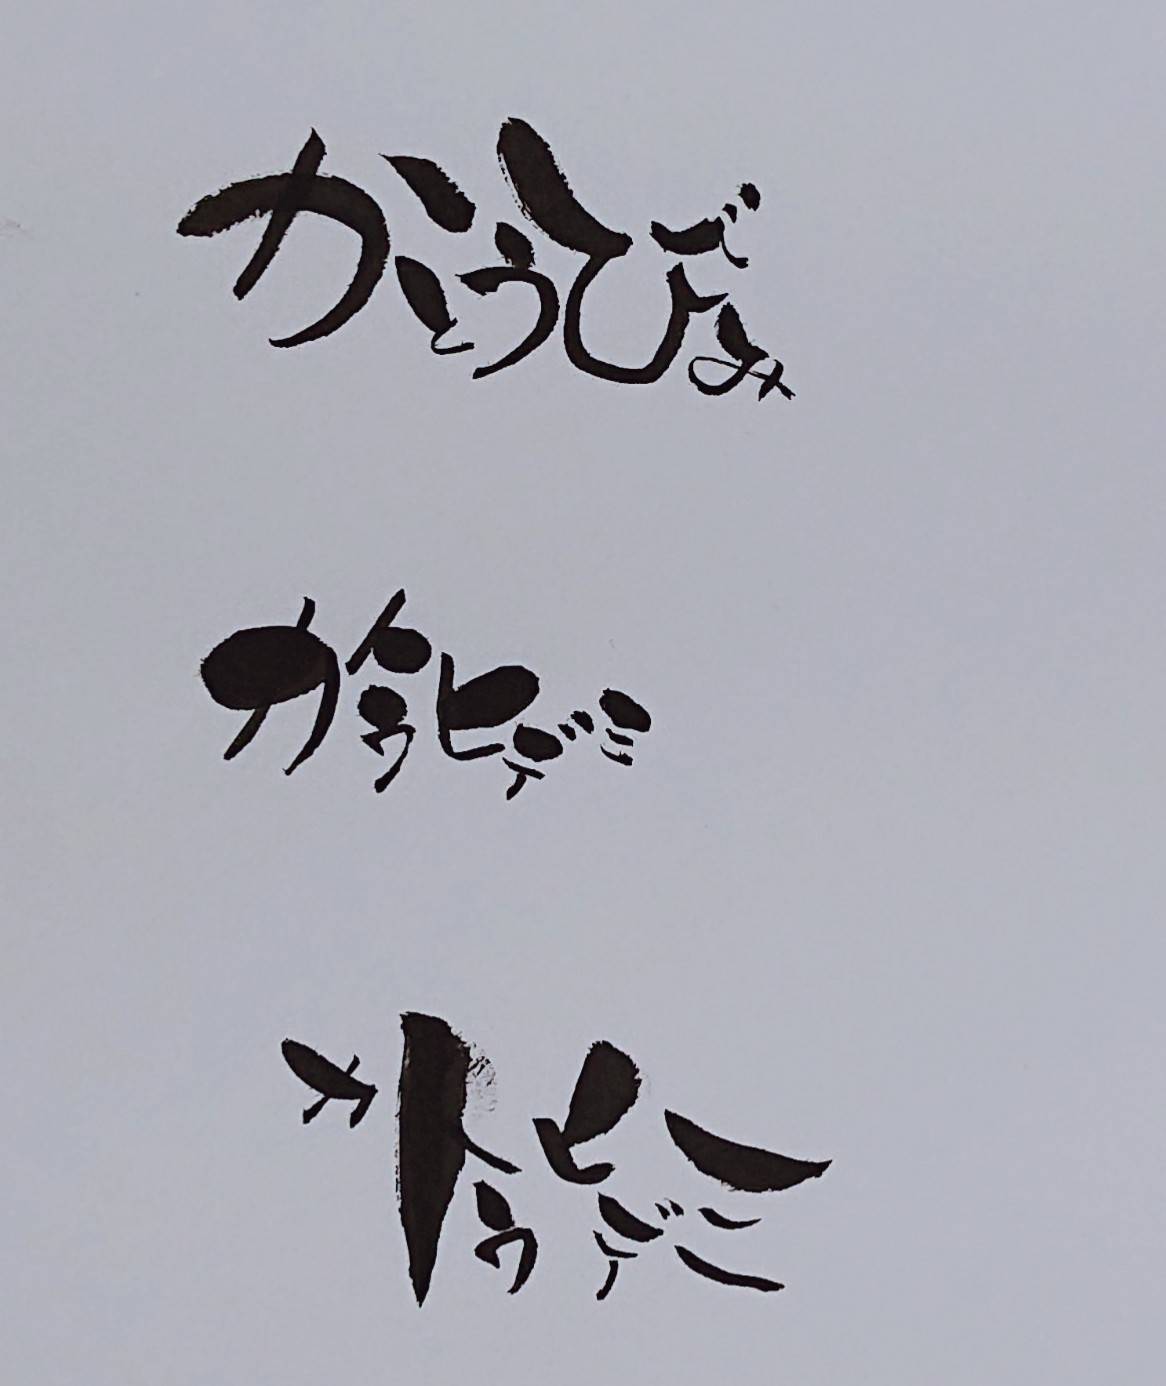 かとうひでみ
カトウヒデミ
カトウヒデミ